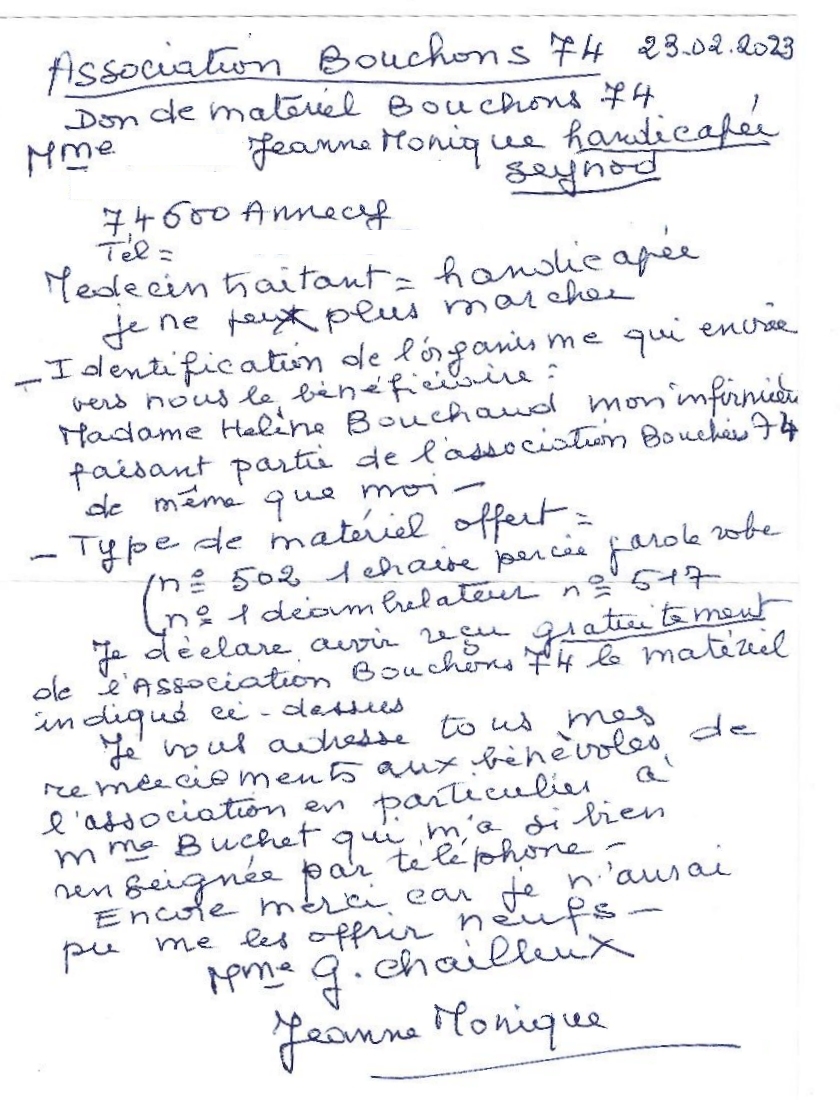 Association Bouchons 74 23.02.2023
Don de matériel Bouchons 74
Mme Jeanne Monique handicapée
Seynod
74600 Annecy
Tél =
Medecin traitant = handicapée
je ne peux plus marcher
- Identification de l'organisme qui envoie
vers nous le bénéficiaire :
Madame Helène Bouchaud mon infirmière
faisant partie de l'association Bouchons 74
de même que moi -
- Type de matériel offert =
(n° 502 1 chaise percée garde robe
(n° 1 déambulateur n° 517
Je déclare avoir reçu gratuitement
de l'Association Bouchons 74 le matériel
indiqué ci-dessus
Je vous adresse tous mes
remerciements aux bénèvoles de
l'association en particulier à
Mme Buchet qui m'a si bien
renseignée par téléphone -
Encore merci car je n'aurai
pu me les offrir neufs -
Mme G. Chailleux
Jeanne Monique